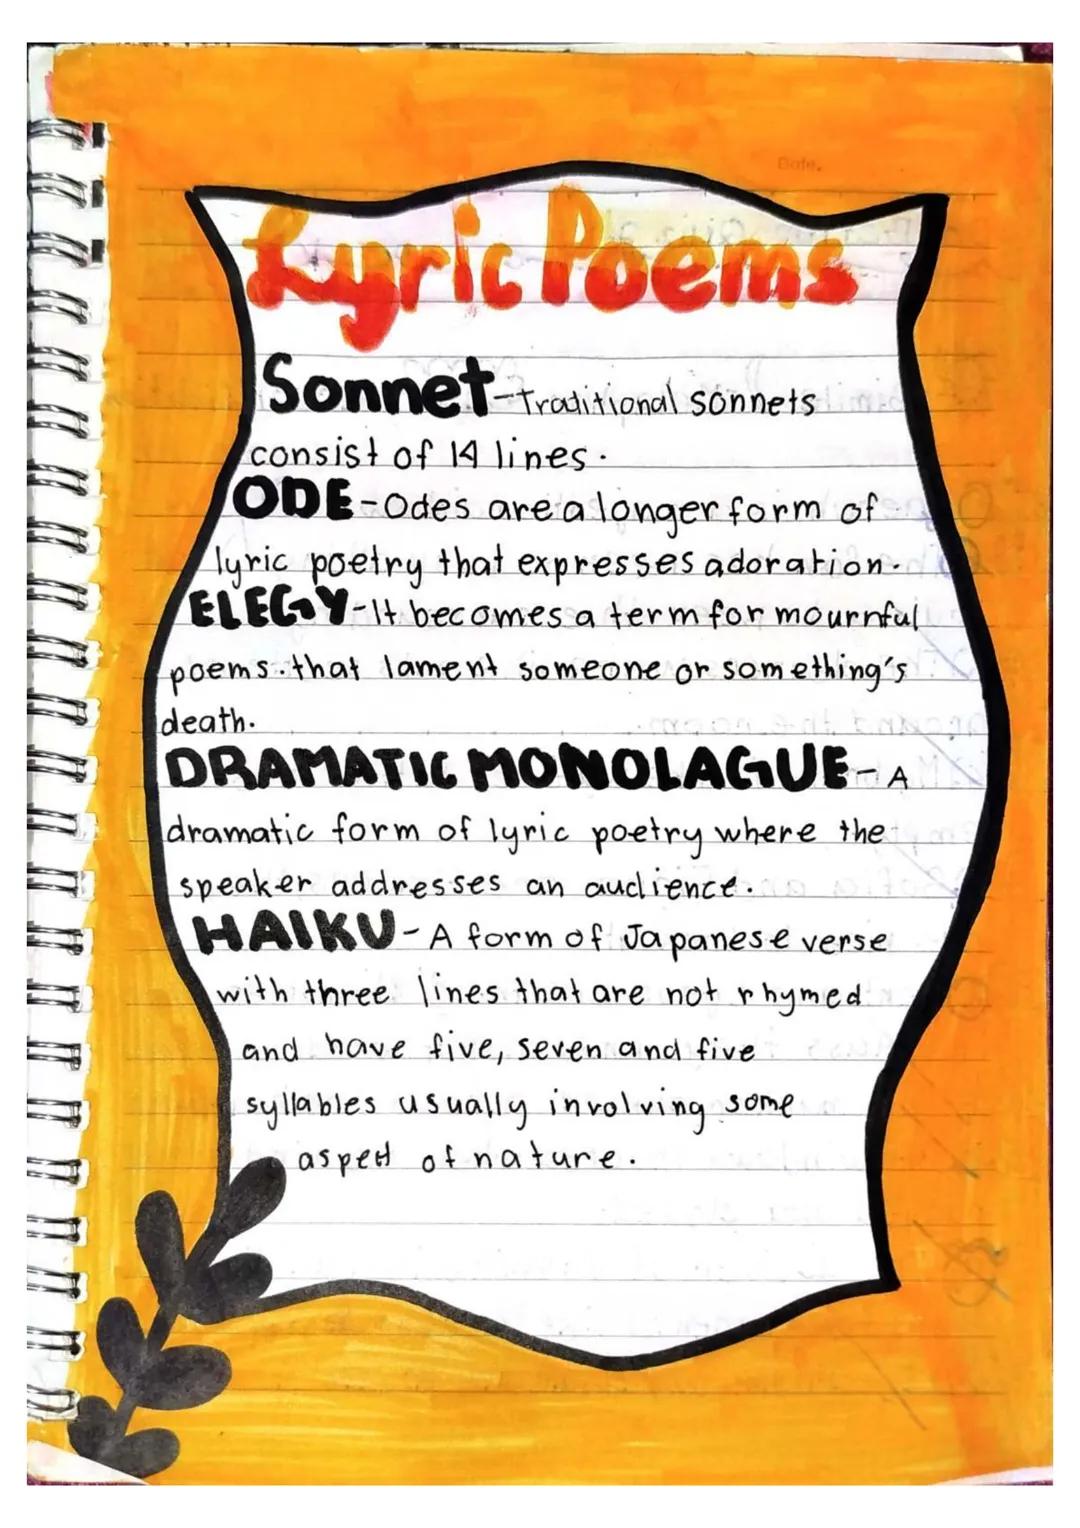 Date.
Lyric Poems
Sonnet-Traditional sonnets
consist of 14 lines.
ODE-Odes are a longer form of
lyric poetry that expresses adoration.
ELEGY-It becomes a term for mournful
poems.that lament someone or something's
death.
DRAMATIC MONOLAGUE-A
dramatic form of lyric poetry where the
speaker addresses an audience.
HAIKU-A form of Japanese verse
with three lines that are not rhymed
and have five, seven and five
syllables usually involving some
aspect of nature.